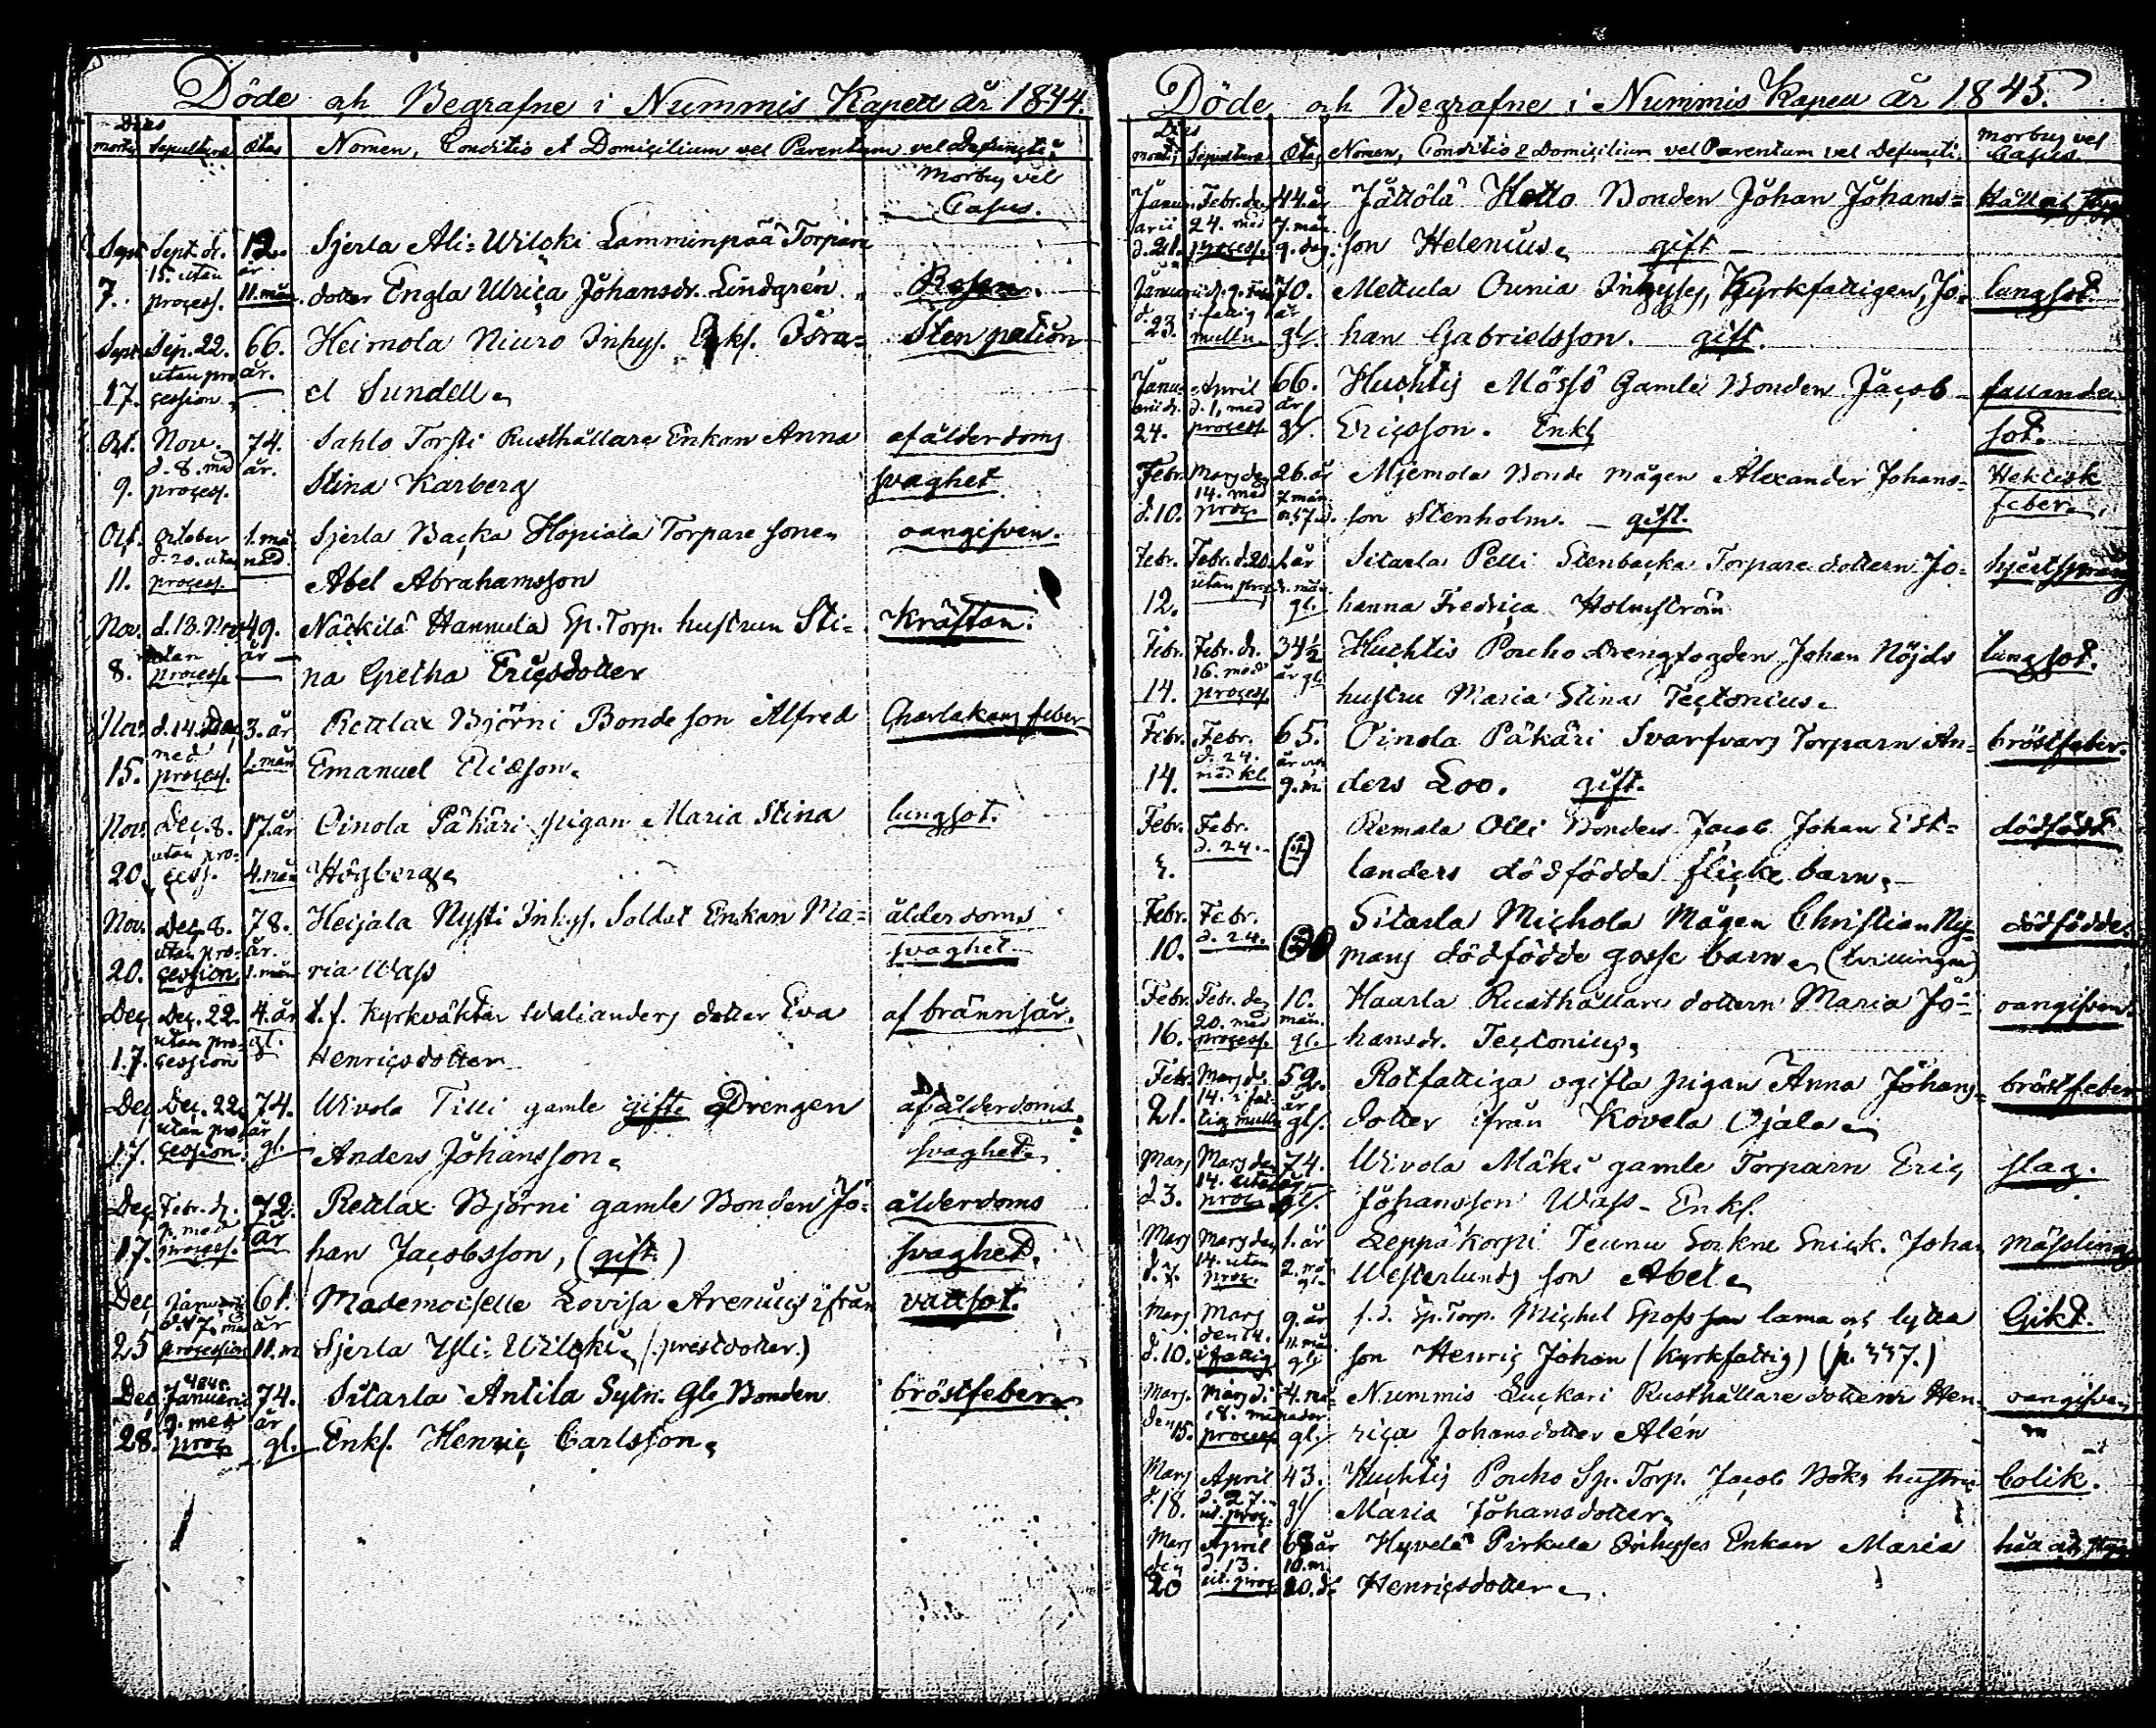 Döde och Begrafne i Nummis Kapell år 1844.
Dies
mortis Sepulturæ Ætas Nomen, Conditio et Domicilium vel Parentum vel Defuncti.
Morbus vel
Casus.
Sept. Sept. d. 12. Sjerla Ali-Wilski Lamminpää Torpare
15. utan år
7. process. 11. mån. dotter Engla Ulrica Johansdr. Lindgrén Rosen.
Sept. Sep. 22. 66. Heimola Niuro Inhys. Enkl. Isra= Sten passion
utan pro år.
17. cession. el Sundell.
Oct. Nov. 74. Sahlo Torsti Rusthållare Enkan Anna af ålderdoms
d. 8. med år.
9. process. Stina Karberg svaghet
Oct. October 1. må Sjerla Backa Hopiala Torpare sonen oangifven.
d. 20. utan nad.
11. process. Abel Abrahamsson
Nov. d. 13. Nov. 49. Näckilä Hannula Sp. Torp. hustrun Sti= Kräftan.
utan år
8. process. na Gretha Ericsdotter
Nov. d. 14. Dec. 3. år Rettlax Björni Bonde son Alfred Charlakans feber
med
15. process. 1. mån Emanuel Elieson.
Nov. Dec. 8. 17. år Oinola Päkäri pigan Maria Stina lungsot.
utan pro-
20. cess. 4. mån Högberg.
Nov. Dec. 8. 78. Heijala Nysti Inhys. Soldat Enkan Ma= ålderdoms
utan pro- år.
20. cession. 1. mån ria Wass svaghet
Dec. Dec. 22. 4. år t. f. Kyrkväktar Walianders dotter Eva af brännsår.
utan pro- gl.
17. cession Henricsdotter
Dec. Dec. 22. 74. Uivola Tilli gamle gifte Drengen af ålderdoms
utan pro- år
17. cession. gl. Anders Johansson. svaghet.
Dec. Febr. d. 72. Rettlax Björni gamle Bonden Jo= ålderdoms
9. med år
17. process. han Jacobsson, (gift) svaghet.
Dec. Januarii 61. Mademoiselle Lovisa Arenius ifrån vattsot.
d. 17. med år
25 procession 11. m Sjerla Ylli-Wilski (prestdotter.)
1845.
Dec. Januarii 74. Sitarla Antila Sytn. Gle Bonden bröstfeber.
9. med år
28. proc. gl. Enkl. Henric Carlsson.
Döde och Begrafne i Nummis Kapell år 1845.
Dies
mortis Sepulturæ Ætas Nomen, Conditio & Domicilium vel Parentum vel Defuncti. Morbus vel
Casus.
Janu- Febr. d. 44 år Jättölä Hotto Bonden Johan Johans= Håll och
arii 24. med 7. mån.
d. 21. process. 9. dag. son Helenius. gift
Janu 70. Mettula Ounia Inhyses, Kyrkfattigen, Jo= lungsot.
d. i fattig år
23. mulln. gl. han Gabrielsson. gift.
Janu- April 66. Huchtis Mössö Gamle Bonden Jacob fallande
arii d. d. 1, med år
24. process gl. Ericsson. Enkl sot.
Febr. Mars den 26. år Mjemola Bonde mågen Alexander Johans= Hektisk
14. med 7 mån
d. 10. proc. son Stenholm. gift. feber.
Febr. Febr. d. 20 1. år Sitarla Pelli Stenbacka Torpare dottern Jo= hjertsprång
utan proc. mån
12. gl. hanna Fredrica Holmström
Febr. Febr. d. 34½ Huchtis Poucho drengfogden Johan Nöjds lungsot.
16. med år gl.
14. process hustru Maria Stina Tectonius.
Febr. Febr. 65. Oinola Päkäri Svarfvars Torparn An= bröstfeber.
d. 24. år och
14. med kl. 9. m ders Loo. gift.
Febr. Febr. Remala Olli Bonden Jacob Johan Ek= dödfödt
d. 24.
landers dödfödda flicke barn.
Febr. Febr. Sitarla Michola Mågen Christian Ny= dödfödde
10. d. 24. mans dödfödde gosse barn. (tvillingar)
Febr. Febr. den 10. Haarla Rusthållare dottern Maria Jo= oangifven.
20. med mån.
16. process. gl. hansdr. Tectonius.
Febr. Mars d. 52. Rotfattiga ogifta pigan Anna Johans= bröstfeber
14. i fat- år
21. tig mulln gl. dotter ifrån Kovela Ojala.
Mars Mars den 74. Uivola Mäki gamle Torparn Eric slag.
14. utan år
d 3. proc. gl. Johansson Wass - Enkl.
Mars Mars den 1. år Leppäkorpi Teunu Sockne Snick. Johan mässling
14. utan 2. mån
d. 7. proc. gl. Westerlunds son Abel.
Mars Mars 9. år f. d. Sp. Torp. Michel Sposs son lama och lytta Gikt.
den 14. 11. mån
d. 10. i fattig gl. son Henric Johan (Kyrkfattig) (p. 337.)
Mars. Mars d. 4. må- Nummis Luckari Rusthållare dottern Hen- oangifven
den 18. med nader
15. process gl. rica Johansdotter Alén
Mars April 43. Huchtis Poucho Sp. Torp. Jacob Böks hustru Colik.
d. d. 27.
18. ut. proc. gl. Maria Johansdotter.
Mars April 68 år Hyvelä Pirkula Inhyses Enkan Maria håll och
den d. 13. 10. m.
20 ut. proc 20. d. Henricsdotter.